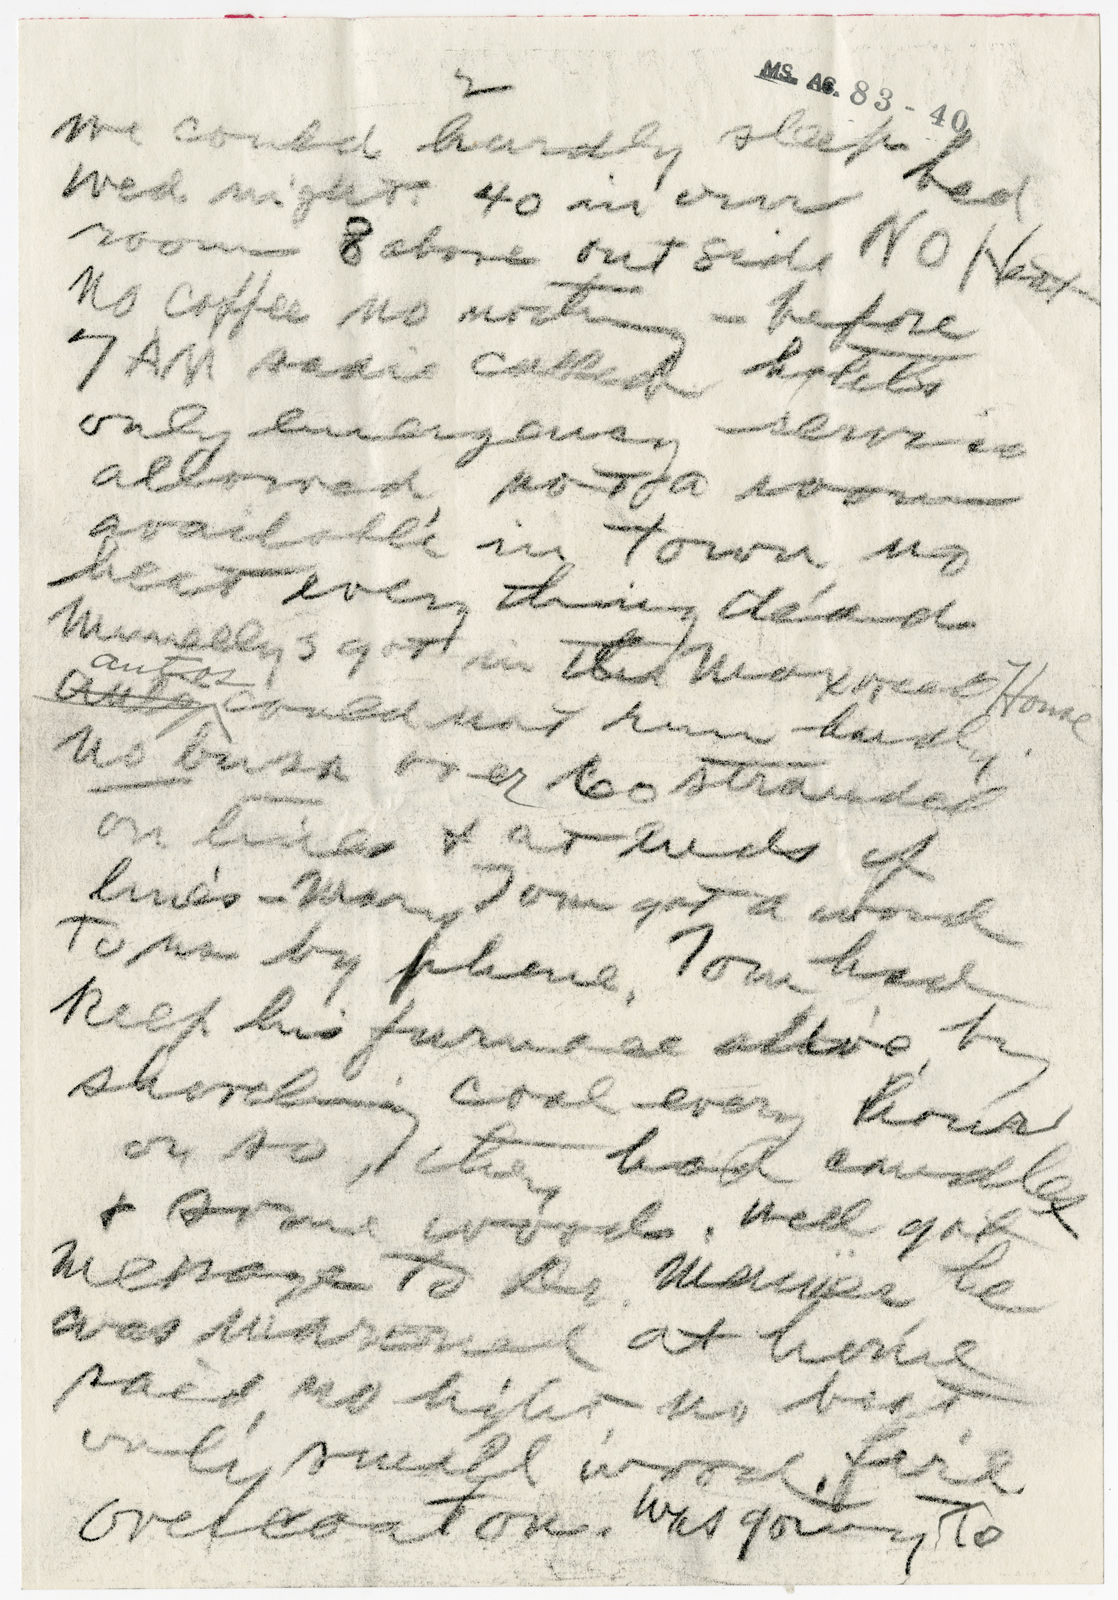 2
MS. AC. 83-40
we could hardly sleep bed
Wed night. 40 in our bed
room 8 above outside NO Heat
No coffee no nothing - before
7 AM radio called hotels
only emergency service
allowed, not a room
available in town, no
heat every thing dead
got in the House
autos
Auto could not run hardly.
No buses over 60 stranded
on lines & at ends of
lines - Mary Tom got a word
to us by phone, Tom had
keep his furnace alive, by
shoveling coal every hour
or so, they had candles
& some woods. Well got
message to Dr. he
was marooned at home
said, no light no heat
only small wood, fire
overcoat on. Was going to